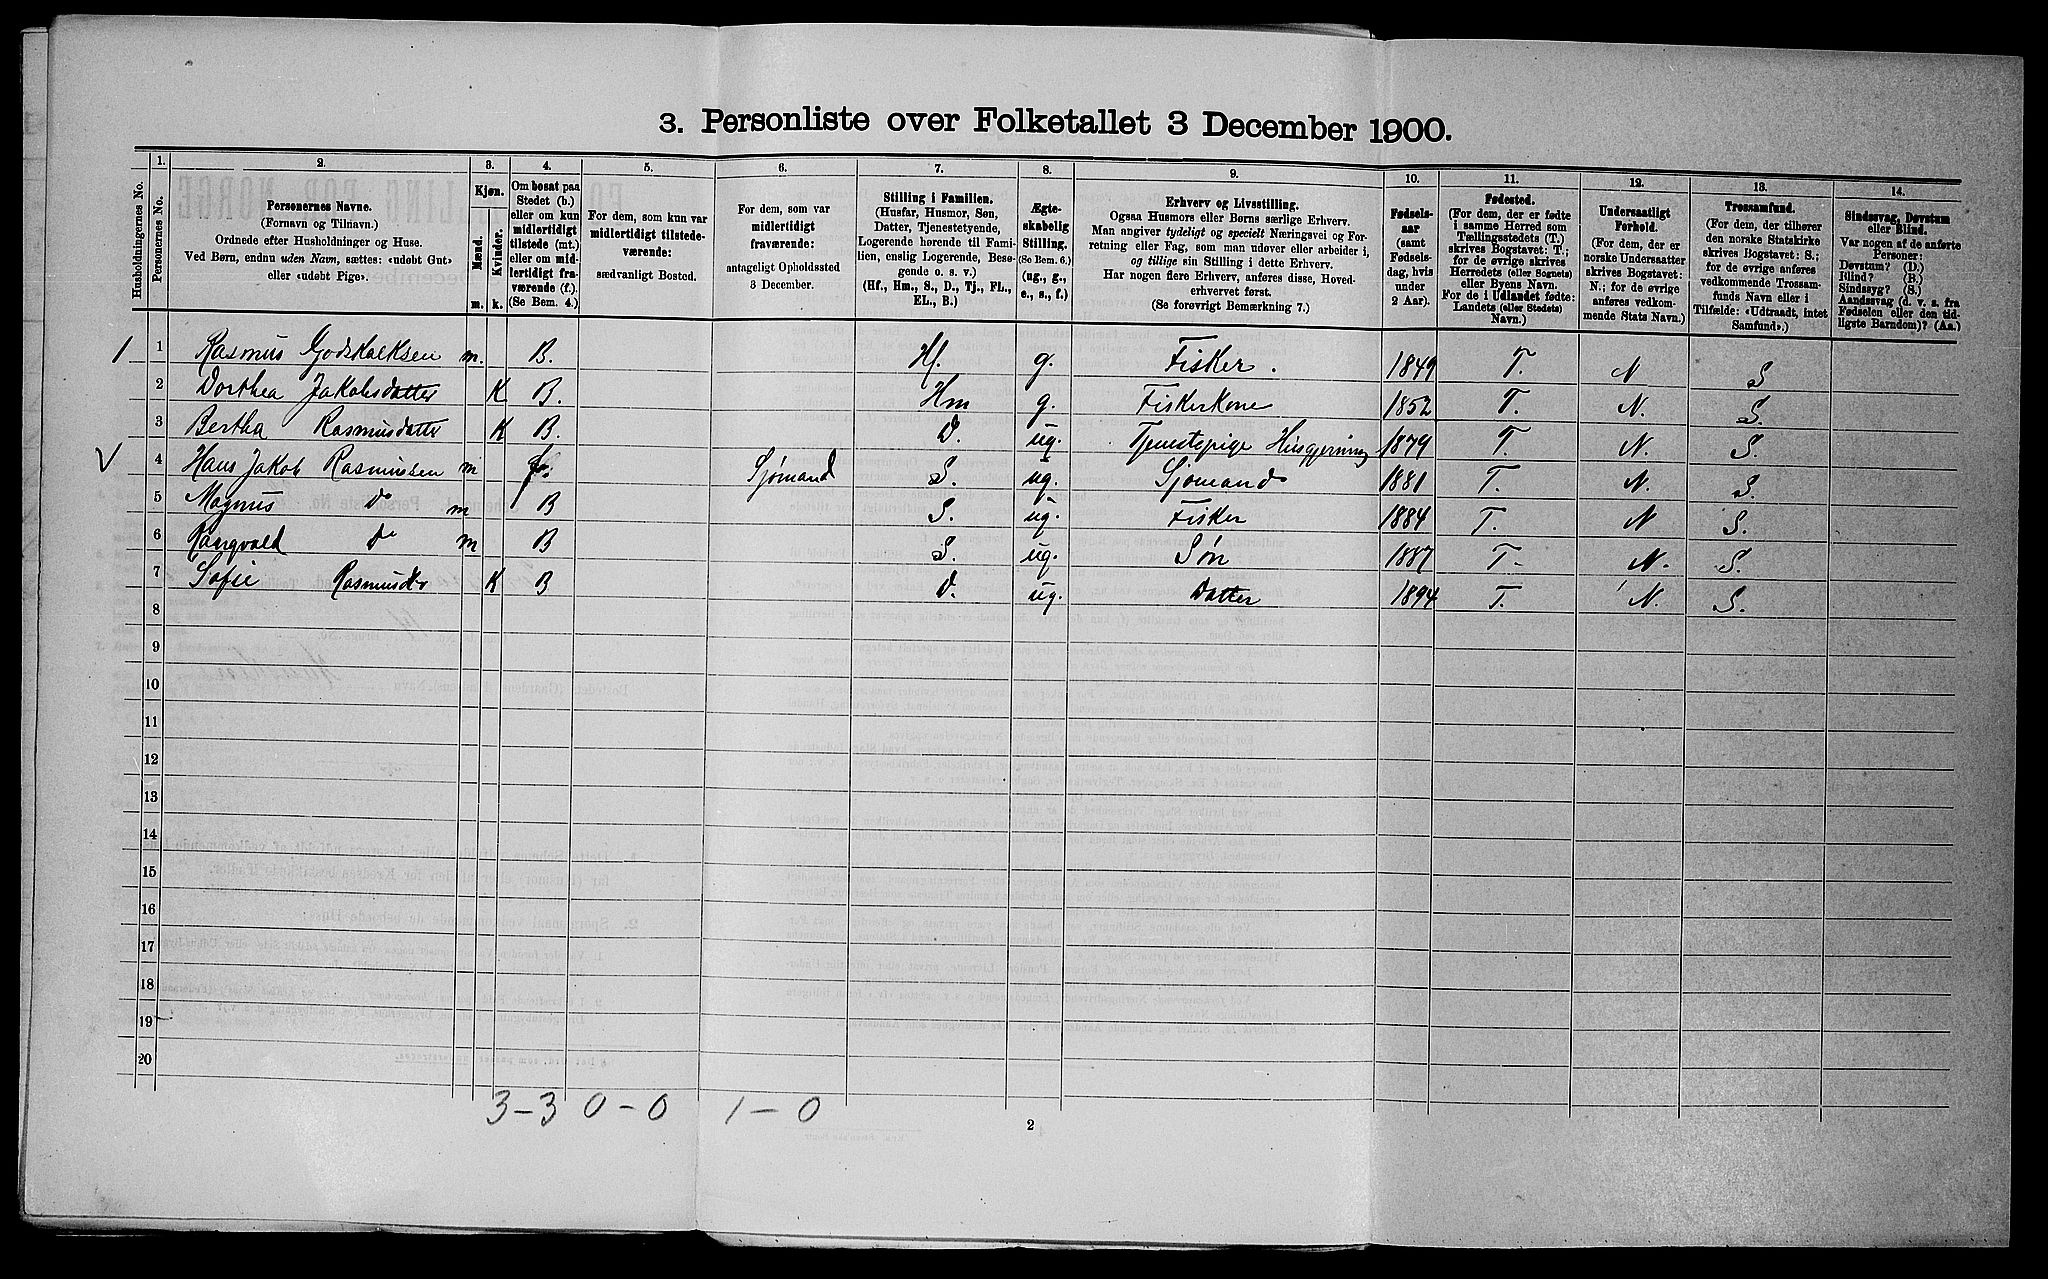 3. Personliste over Folketallet 3 December 1900.
Husholdningernes No.
1. Personernes No.
2. Personernes Navne. (Fornavn og Tilnavn.) Ordnede efter Husholdninger og Huse. Ved Børn, endnu uden Navn, sættes: «udøbt Gut» eller «udøbt Pige».
3. Kjøn. Mænd. m. Kvinder. k.
4. Om bosat paa Stedet (b.) eller om kun midlertidigt tilstede (mt.) eller om midlertidigt fraværende (f.). (Se Bem. 4.)
5. For dem, som kun var midlertidigt tilstedeværende: sædvanligt Bosted.
6. For dem, som var midlertidigt fraværende: antageligt Opholdssted 3 December.
7. Stilling i Familien. (Husfar, Husmor, Søn, Datter, Tjenestetyende, Logerende hørende til Familien, enslig Logerende, Besøgende o. s. v.) (Hf., Hm., S., D., Tj., FL., EL., B.)
8. Ægteskabelig Stilling. (Se Bem. 6.) (ug., g., e., s., f.)
9. Erhverv og Livsstilling. Ogsaa Husmors eller Børns særlige Erhverv. Man angiver tydeligt og specielt Næringsvei og Forretning eller Fag, som man udøver eller arbeider i, og tillige sin Stilling i dette Erhverv. Har nogen flere Erhverv, anføres disse, Hovederhvervet først. (Se forøvrigt Bemærkning 7.)
10. Fødselsaar (samt Fødselsdag, hvis under 2 Aar).
11. Fødested. (For dem, der er fødte i samme Herred som Tællingsstedets (T.) skrives Bogstavet: T.; for de øvrige skrives Herredets (eller Sognets) eller Byens Navn. For de i Udlandet fødte: Landets (eller Stedets) Navn.)
12. Undersaatligt Forhold. (For dem, der er norske Undersaatter skrives Bogstavet: N.; for de øvrige anføres vedkommende Stats Navn.)
13. Trossamfund. (For dem, der tilhører den norske Statskirke skrives Bogstavet: S.; for de øvrige anføres vedkommende Trossamfunds Navn eller i Tilfælde: «Udtraadt, intet Samfund».)
14. Sindssvag, Døvstum eller Blind. Var nogen af de anførte Personer: Døvstum? (D.) Blind? (B.) Sindssyg? (S.) Aandssvag (d. v. s. fra Fødselen eller den tidligste Barndom)? (Aa.)
1 1 Rasmus Godskalksen m. B. Hf. g. Fisker. 1849 T. N S
2 Dorthea Jakobsdatter K B. Hm g. Fiskerkone 1852 T. N. S.
3 Bertha Rasmusdatter K B. D. ug. Tjenestepige Husgjerning 1879 T. N. S.
V 4 Hans Jakob Rasmussen m f. Sjømand S. ug. Sjømand 1881 T. N. S.
5 Magnus Do m B S. ug. Fisker 1884 T. N S.
6 Rangvald Do m B S. ug. Søn 1887 T. N. S.
7 Sofie Rasmusdtr K B D. ug. Datter 1894 T. N. S.
8
9
10
11
12
13
14
15
16
17
18
19
20
3-3 0-0 1-0
2